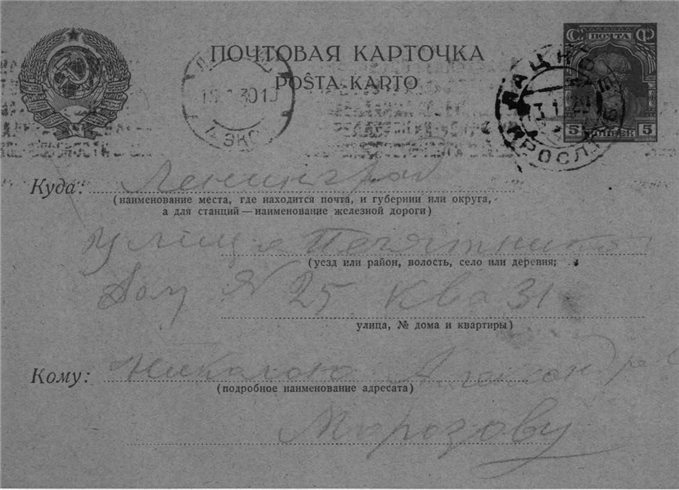 ПОЧТОВАЯ КАРТОЧКА
POŜTA KARTO
С ПОЧТА Ф
5 КОПЕЕК 5
Куда: Ленинград
(наименование места, где находится почта, и губернии или округа,
а для станций—наименование железной дороги)
улица
(уезд или район, волость, село или деревня;
Дом № 25 Кв 31
улица, № дома и квартиры)
Кому: Николаю
(подробное наименование адресата)
Морозову